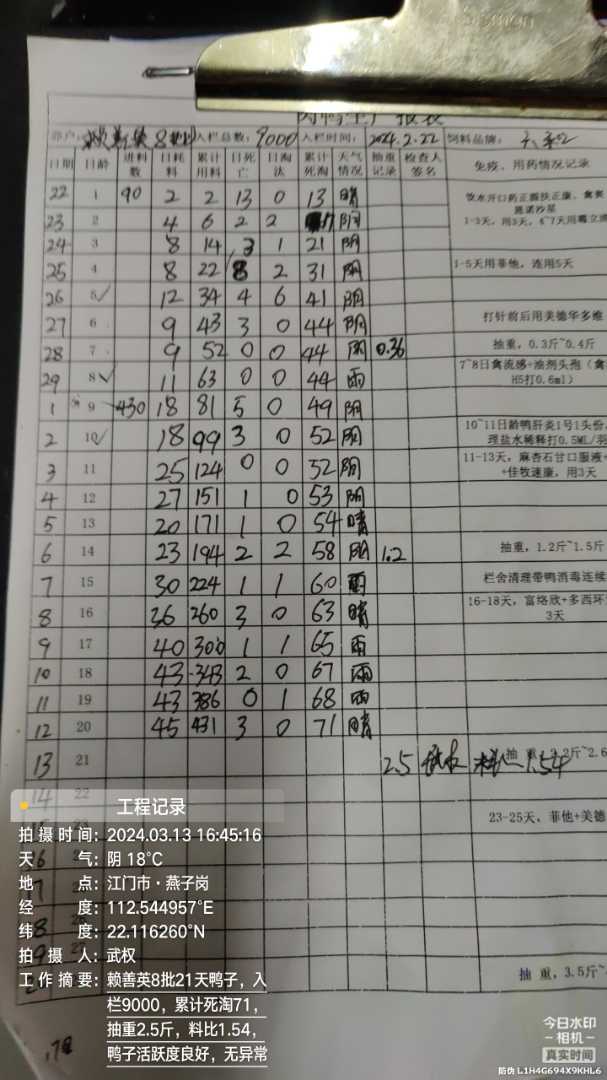 肉鸭生产报表
养户: 赖善英 8批 入栏总数: 9000 入栏时间: 2024.2.22 饲料品牌:
日期 日龄 进料数 日耗料 累计用料 日死亡 日淘汰 累计死淘 天气情况 抽重记录 检查人签名 免疫、用药情况记录
22 1 90 2 2 13 0 13 晴 饮水开口药正源扶正康、禽
恩诺沙星
23 2 4 6 2 2 17 阴 1-3天，用3天，4~7天用霉立
24 3 8 14 3 1 21 阴
25 4 8 22 8 2 31 阴 1-5天用菲他，连用5天
26 5✓ 12 34 4 6 41 阴
27 6 9 43 3 0 44 阴 打针前后用美德华多维
28 7 9 52 0 0 44 阴 0.36 抽重，0.3斤~0.4斤
29 8✓ 11 63 0 0 44 雨 7~8日禽流感+油剂头孢（禽
H5打0.6ml）
1 9 430 18 81 5 0 49 阴
2 10✓ 18 99 3 0 52 阴 10~11日龄鸭肝炎1号1头份，
理盐水稀释打0.5ML/羽
3 11 25 124 0 0 52 阴 11-13天，麻杏石甘口服液+
+佳牧速康，用3天
4 12 27 151 1 0 53 阴
5 13 20 171 1 0 54 晴
6 14 23 194 2 2 58 阴 1.2 抽重，1.2斤~1.5斤
7 15 30 224 1 1 60 雨 栏舍清理带鸭消毒连续
8 16 36 260 3 0 63 晴 16-18天，富络欣+多西环
3天
9 17 40 300 1 1 65 雨
10 18 43 343 2 0 67 雨
11 19 43 386 0 1 68 雨
12 20 45 431 3 0 71 晴
13 21 2.5 1.54 抽重，2.2斤~2.6
14 22
23-25天，菲他+美德
抽重，3.5斤~
工程记录
拍摄时间: 2024.03.13 16:45:16
天气: 阴 18°C
地点: 江门市·燕子岗
经度: 112.544957°E
纬度: 22.116260°N
拍摄人: 武权
工作摘要: 赖善英8批21天鸭子，入
栏9000，累计死淘71，
抽重2.5斤，料比1.54，
鸭子活跃度良好，无异常
今日水印
-相机-
真实时间
防伪 L1H4G694X9KHL6